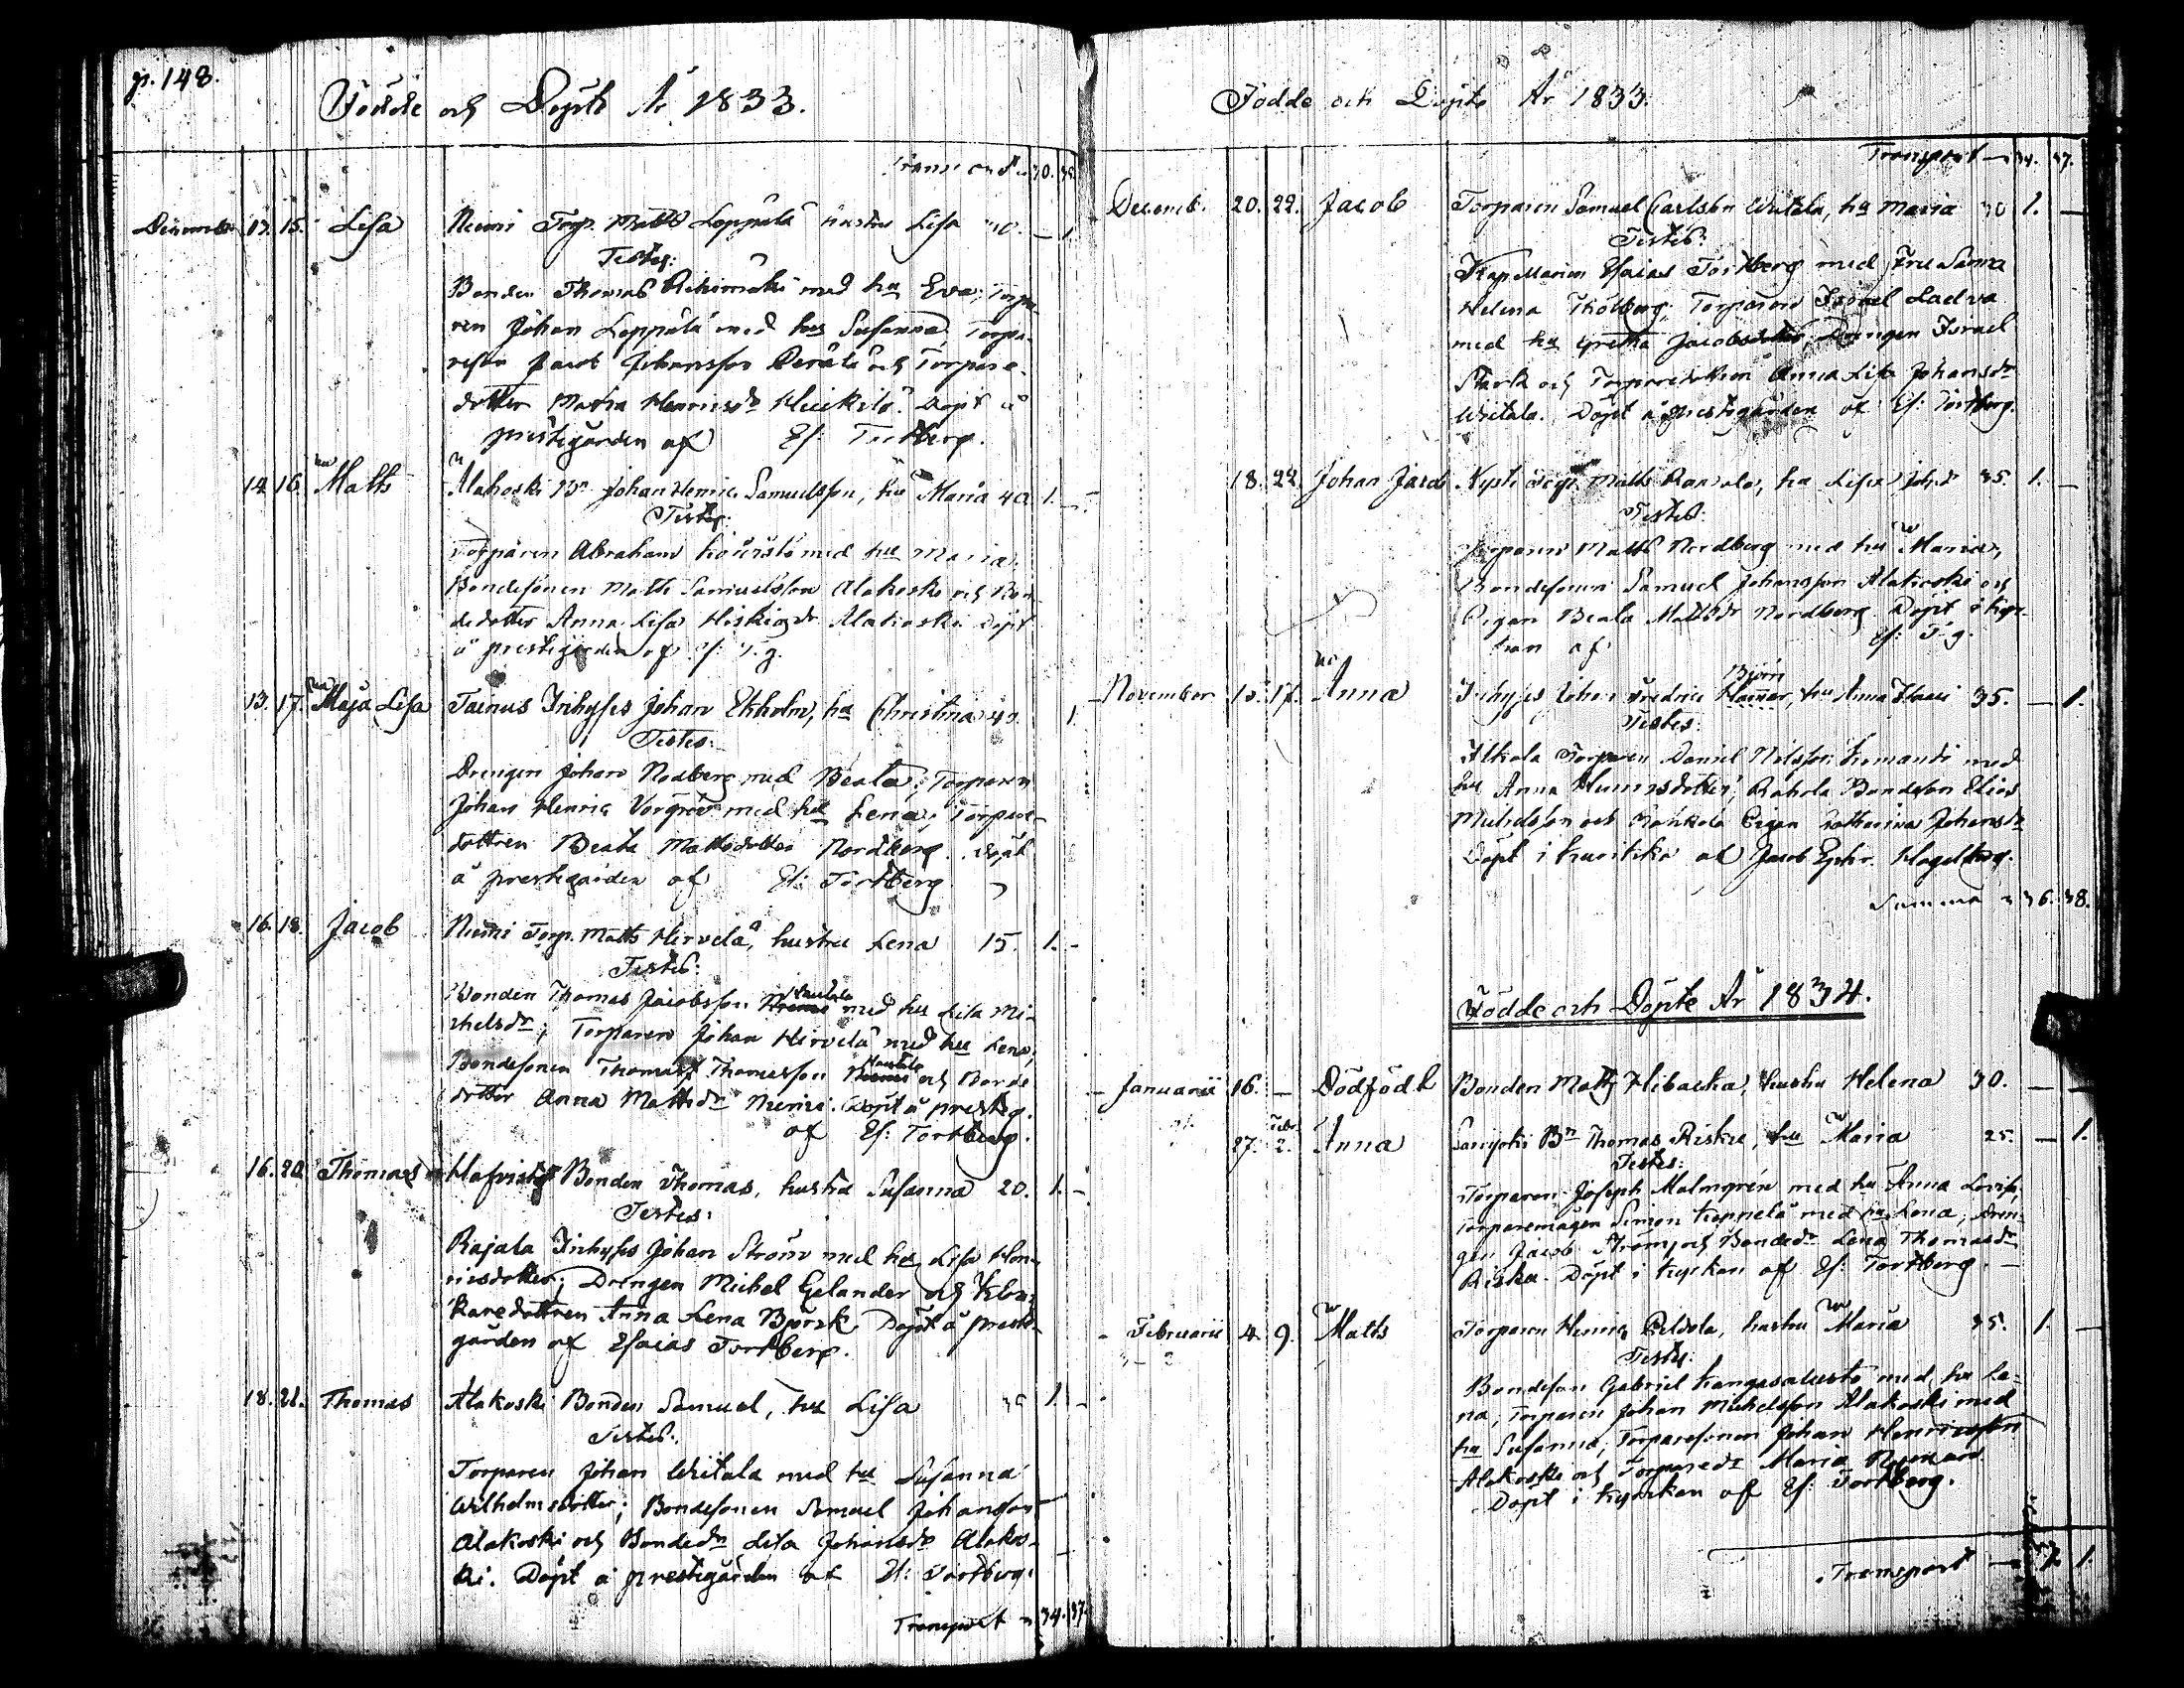 p. 148.
Födde och Döpte År 1833.
Transport 30. 35.
December 13. 15. Lisa Niemi Torp. Matts Leppälä hustru Lisa 40. — 1.
Testes:
Bonden Thomas Riihimäki med hu Eva; Torpa-
ren Johan Leppälä med hu Susanna, Torpa-
resson Jacob Johansson Perälä och Torpare-
dotter Maria Henricsdr Heickilä. Döpt å
prestgården af Es: Tortberg.
14. 16. Matts Alakoski Bn Johan Henric Samuelsson, hu Maria 40 1. —
Testes:
Torparen Abraham med hu Maria,
Bondesonen Matts Samuelsson Alakoski och Bon-
dedotter Anna Lisa Hiskiasdr Alakoski. Döpt
å prestgården af Es: T.g.
13. 17. Maja Lisa Tainus Inhyses Johan Ekholm, hu Christina 40. 1.
Testes:
Drengen Johan Nordberg med Beata; Torparen
Johan Henric Vargren med hu Lena; Torpare-
dottren Beata Mattsdotter Nordberg. Döpt
å prestgården af Es: Tortberg
16. 18. Jacob Niemi Torp. Matts Hirvelä, hustru Lena 15. 1. -
Testes:
Bonden Thomas Jacobsson Niemi Hautala med hu Lisa Mi-
chelsdr; Torparen Johan Hirvelä med hu Lena;
Bondesonen Thomas Thomasson Niemi Hautala och Bonde
dotter Anna Mattsdr Niemi. Döpt å prestg.
af Es: Tortberg.
16. 20. Thomas Bonden Thomas, hustru Susanna 20. 1. -
Testes:
Rajala Inhyses Johan Ström med hu Lisa Hen-
ricsdotter; Drengen Michel Gelander och Kloc-
karedottren Anna Lena Björck Döpt å prest-
gården af Esaias Tortberg.
18. 21. Thomas Alakoski Bonden Samuel, hu Lisa 35 1. -
Testes:
Torparen Johan Writala med hu Susanna
Wilhelmsdotter; Bondesonen Samuel Johansson
Alakoski och Bondedr Lisa Johansdr Alakos-
ki. Döpt å prestgården af Es: Tortberg.
Transport 34. 37.
Födde och Döpte År 1833.
Transport 34. 37.
Decemb. 20. 22. Jacob Torparen Samuel Carlsson Writala, hu Maria 30 1. —
Testes:
Kapellanen Esaias Tortberg med fru Sanna
Helena Tholberg; Torparen Israel Ladva
med hu Gretha Jacobsdotter, Drengen Israel
Stark och Torparedottren Anna Lisa Johansdr
Writala. Döpt å prestegården af Es: Tortberg.
18. 22. Johan Jacob Matts hu Lisa Johsdr 35. 1. —
Testes:
Torparen Matts Nordberg med hu Maria,
Bondesonen Samuel Johansson Alakoski och
Pigan Beata Mattsdr Nordberg. Döpt i kyr-
kan af Es: T.g.
November 15. 17. Anna Inhyses Johan Fredric Hamar Björn, hu Anna 35. — 1.
Testes:
Torparen Daniel Nilsson med
hu Anna Henricsdotter; Bondeson Elias
Michelsson och Pigan Catharina Johansdr
Döpt i af Jacob Ephr. Hagelberg.
Summa 36. 38.
Födde och Döpte År 1834.
Januarii 16. — Dödfödt Bonden Matts Hibacka, hustru Helena 30. — —
27. Febr. 2. Anna Bn Thomas Riska, hu Maria 25. — 1.
Testes:
Torparen Joseph Malmgrén med hu Anna Lovisa,
Torparemågen Simon Keppelä med hu Lena; Dren-
gen Jacob Ström och Bondedr Lena Thomasdr
Riska. Döpt i kyrkan af Es: Tortberg. —
Februarii 4. 9. Matts Torparen Henric Peldola, hustru Maria 35. 1. —
Testes:
Bondeson Gabriel Kangasaluste med hu Le-
na, Torparen Johan Michelsson Alakoski med
hu Susanna, Torparesonen Johan Henricsson
Alakoski och Torparedr Maria
Döpt i kyrckan af Es: Tortberg.
Transport — 1.